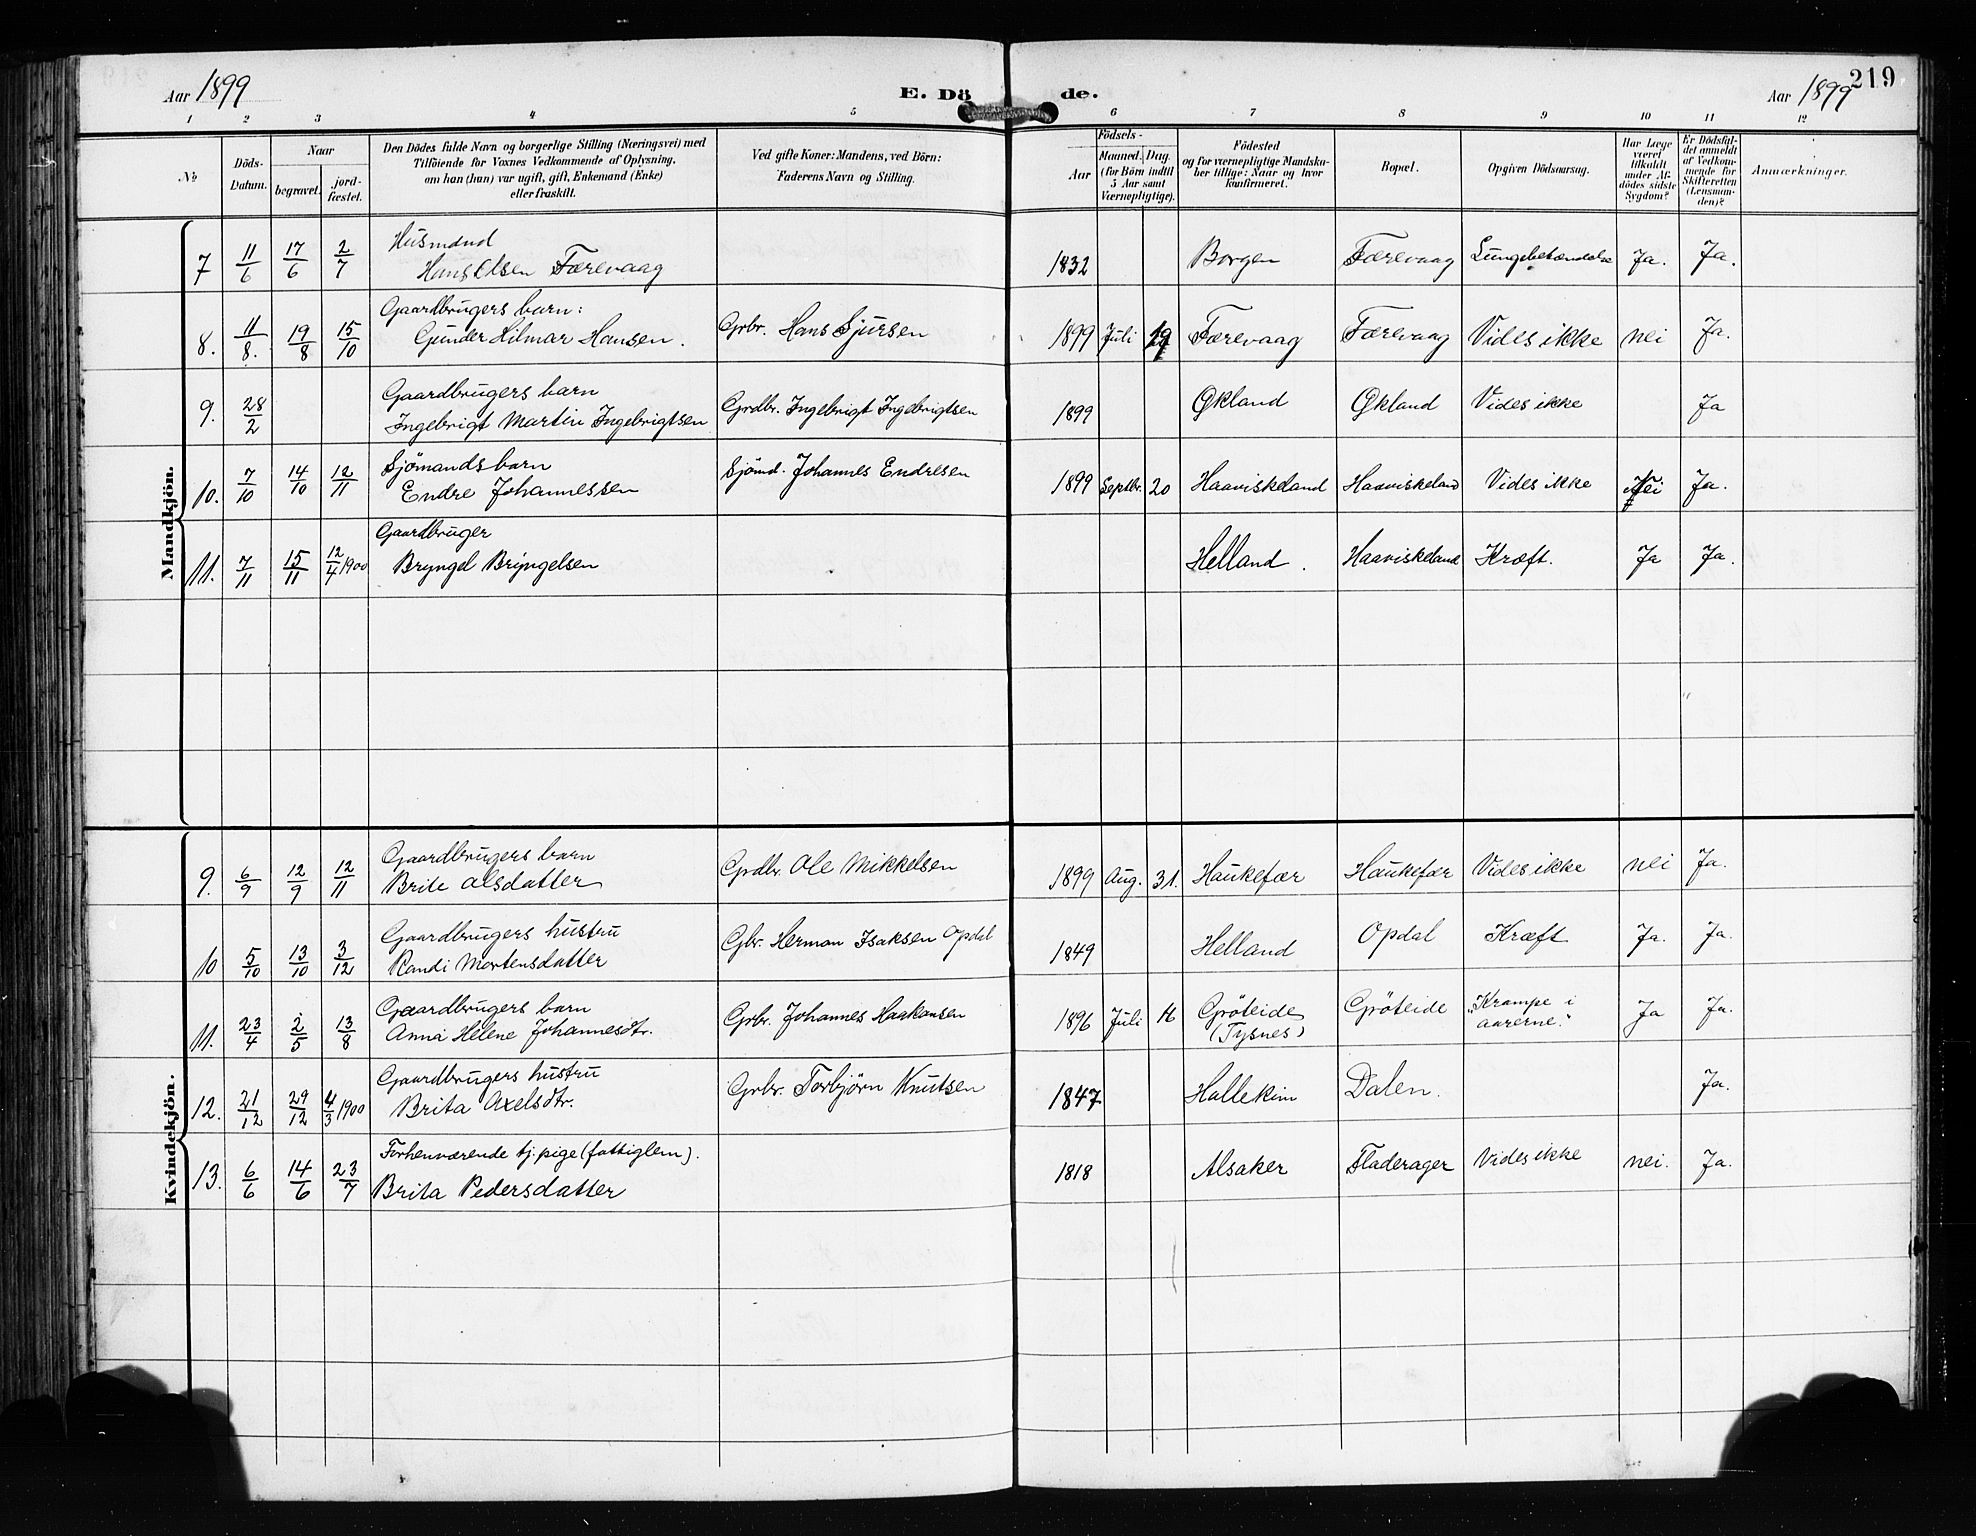 Aar 1899 E. Dö de. Aar 1899 219
1 2 3 4 5 6 7 8 9 10 11 12
No
Döds-Datum.
Naar
begravet.
jord-fæstet.
Den Dödes fulde Navn og borgerlige Stilling (Næringsvei) med
Tilföiende for Voxnes Vedkommende af Oplysning,
om han (hun) var ugift, gift, Enkemand (Enke)
eller fraskilt.
Ved gifte Koner: Mandens, ved Börn:
Faderens Navn og Stilling.
Födsels-
Aar
Maaned. Dag.
(for Börn indtil
5 Aar samt
Værnepligtige).
Födested
og for værnepligtige Mandska-
ber tillige: Naar og hvor
konfirmeret.
Bopæl.
Opgiven Dödsaarsag.
Har Læge
været
tilkaldt
under Af-
dödes sidste
Sygdom?
Er Dödsfal-
det anmeldt
af Vedkom-
mende for
Skifteretten
(Lensman-
den)?
Anmærkninger.
Mandkjön.
Husmand
7 11/6 17/6 2/7 Hans Olsen Færevaag 1832 Borgen Færevaag Lungebetændelse Ja. Ja.
Gaardbrugers barn:
8. 11/8. 19/8 15/10 Gunder Hilmar Hansen. Grbr. Hans Sjursen 1899 Juli 19 Færevaag Færevaag Vides ikke nei Ja.
Gaardbrugers barn
9. 28/2 Ingebrigt Martin Ingebrigtsen Grdbr. Ingebrigt Ingebrigtsen 1899 Økland Økland Vides ikke Ja
Sjömands barn
10. 7/10 14/10 12/11 Endre Johannessen Sjömd. Johannes Endresen 1899 Septbr. 20 Haaviskeland Haaviskeland Vides ikke Nei Ja.
Gaardbruger
11. 7/11 15/11 12/4 1900 Bryngel Bryngelsen Helland. Haaviskeland Kræft. Ja Ja.
Kvindekjön.
Gaardbrugers barn
9. 6/9 12/9 12/11 Brite Olsdatter Grdbr. Ole Mikkelsen 1899 Aug. 31. Haukefær Haukefær Vides ikke nei Ja.
Gaardbrugers hustru
10 5/10 13/10 3/12 Randi Mortensdatter Gbr. Herman Isaksen Opdal 1849 Helland Opdal Kræft Ja. Ja.
Gaardbrugers barn
11. 23/4 2/5 13/8 Anna Helene Johannesdtr. Grbr. Johannes Haakonsen 1896 Juli 16 Gröteide (Tysnes) Gröteide "Krampe i aarerne." Ja Ja.
Gaardbrugers hustru
12. 21/12 29/12 4/3 1900 Brita Axelsdtr. Grbr. Torbjörn Knutsen 1847 Hallekim Dalen. Ja.
Forhenværende tj.pige (fattiglem).
13. 6/6 14/6 23/7 Brita Pedersdatter 1818 Alsaker Fladerager Vides ikke nei. Ja.